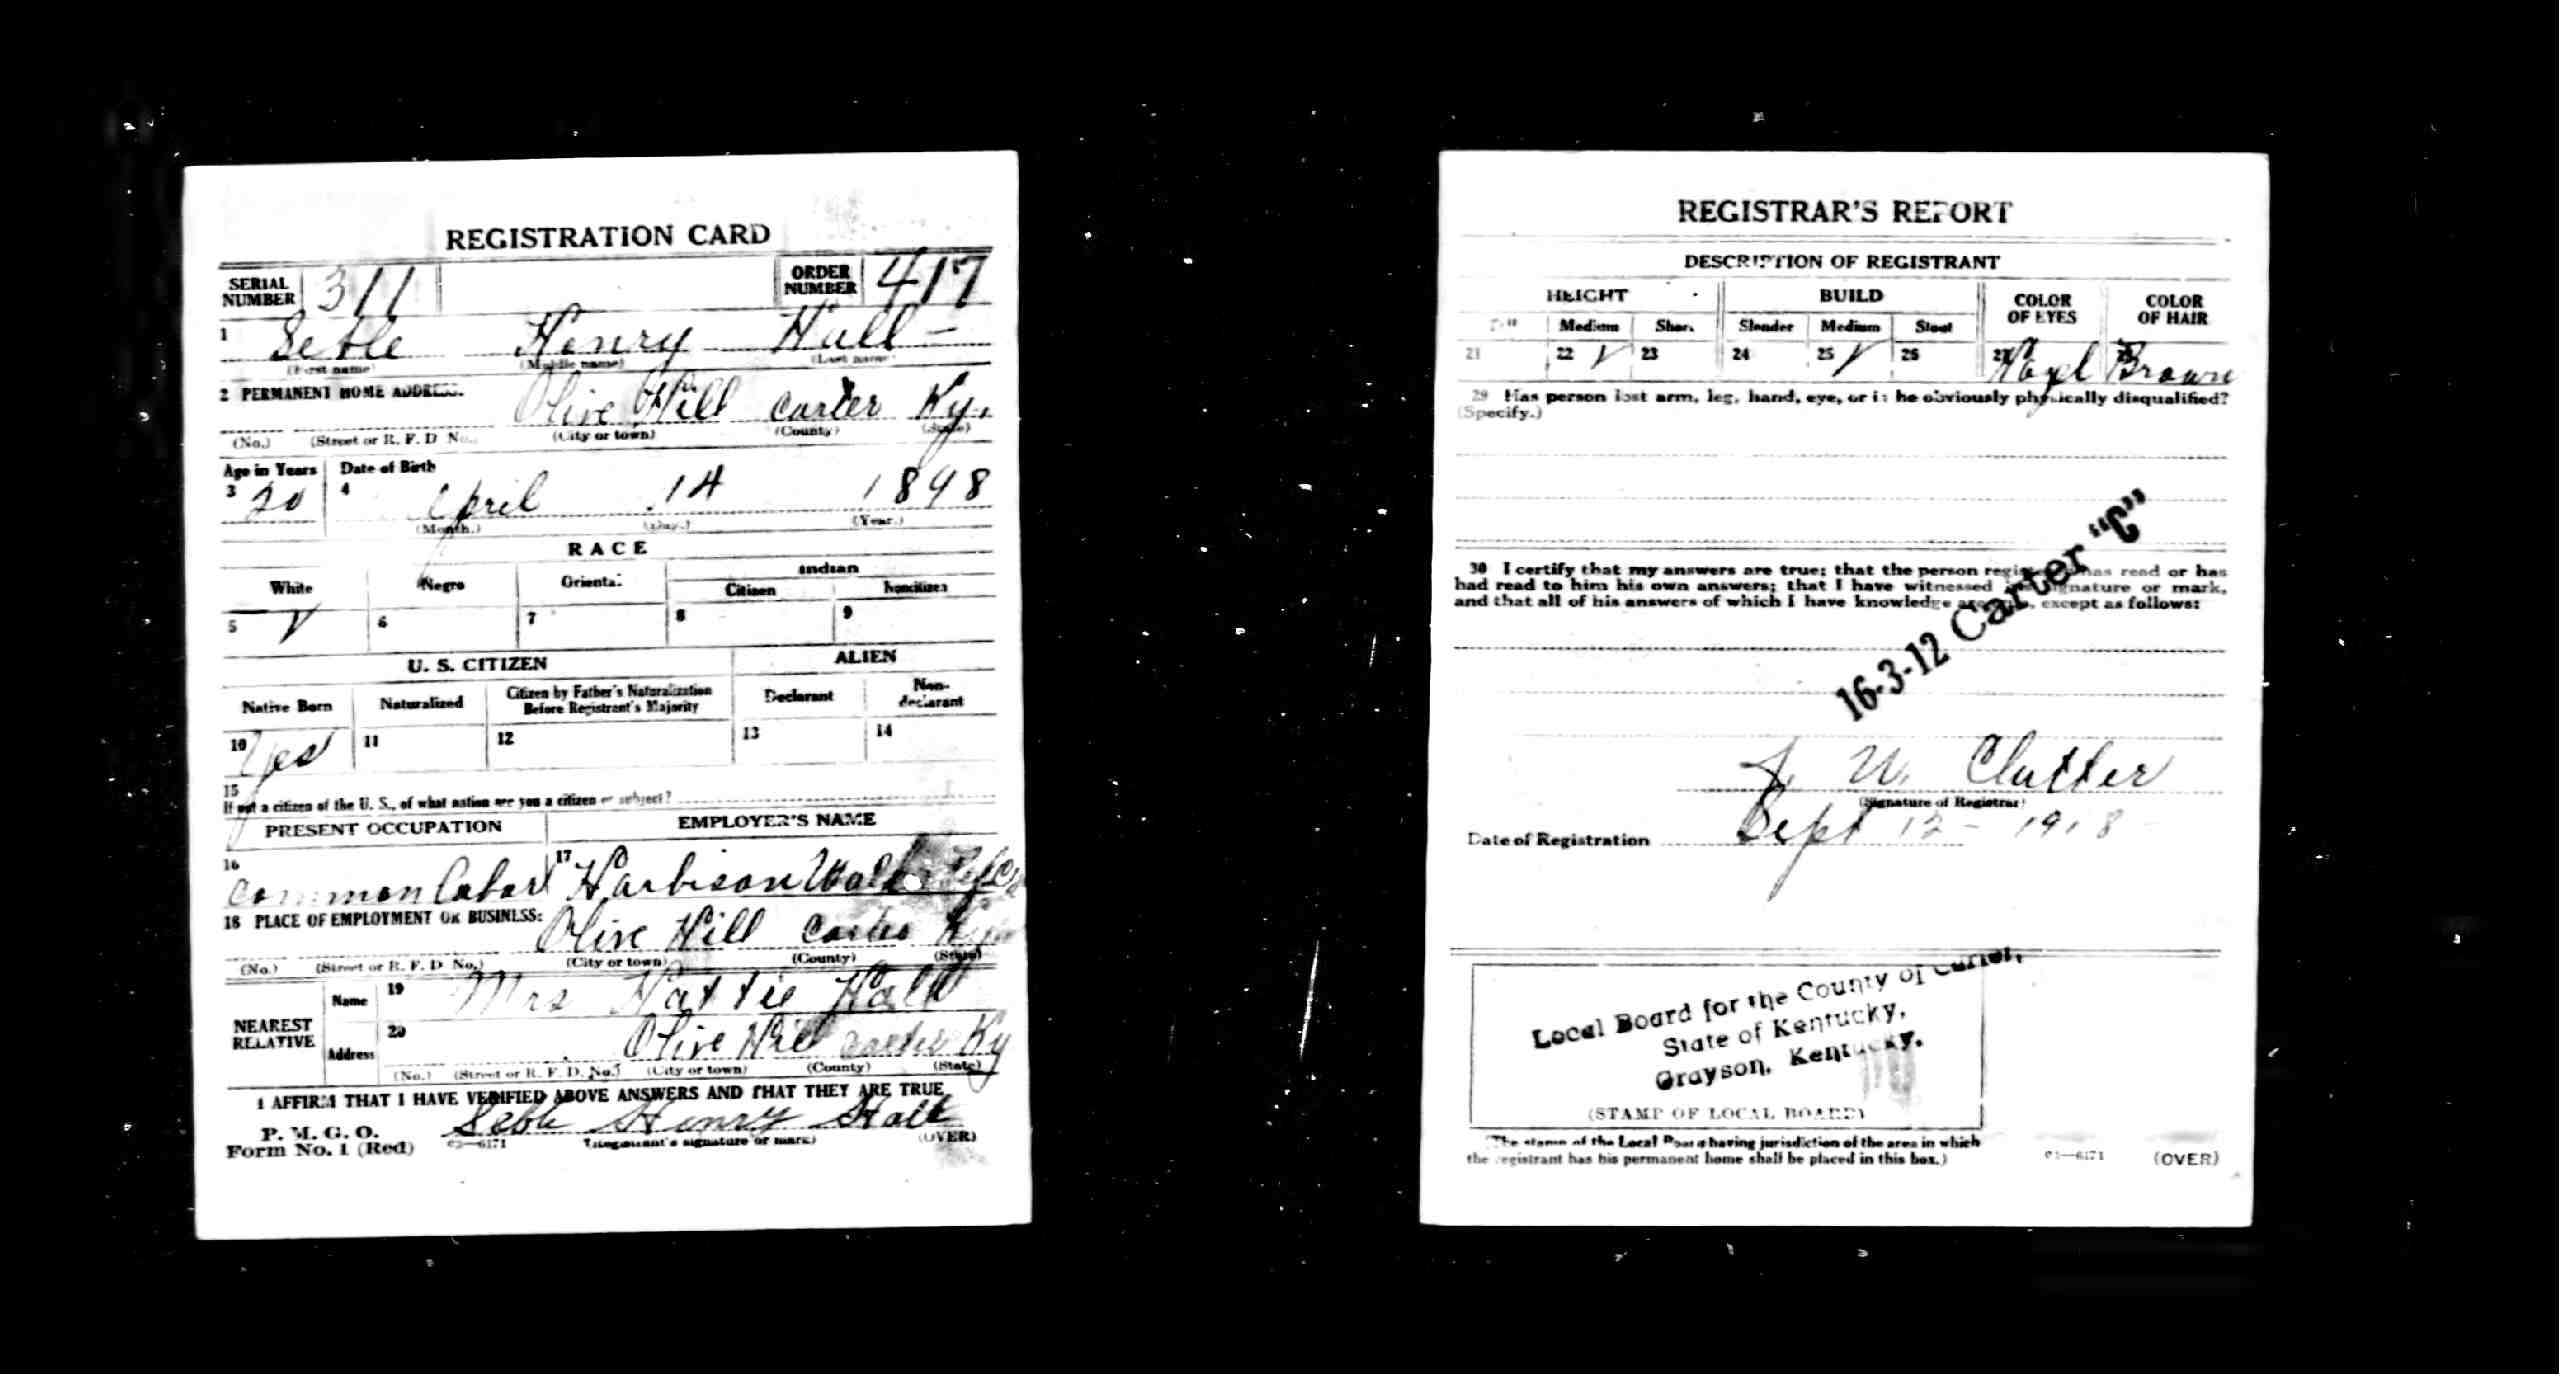 REGISTRATION CARD
SERIAL NUMBER 311 ORDER NUMBER 417
1 Henry Hall
(First name) (Middle name) (Last name)
2 PERMANENT HOME ADDRESS: Olive Hill Carter Ky.
(No.) (Street or R. F. D. No.) (City or town) (County) (State)
Age in Years Date of Birth
3 20 4 April 14 1898
(Month.) (Day.) (Year.)
RACE
White Negro Oriental Indian
Citizen Noncitizen
5 ✓ 6 7 8 9
U. S. CITIZEN ALIEN
Native Born Naturalized Citizen by Father's Naturalization Before Registrant's Majority Declarant Non-declarant
10 Yes 11 12 13 14
15
If not a citizen of the U. S., of what nation are you a citizen or subject?
PRESENT OCCUPATION EMPLOYER'S NAME
16 Common Labor 17 Harbison
18 PLACE OF EMPLOYMENT OR BUSINESS: Olive Hill Carter Ky
(No.) (Street or R. F. D. No.) (City or town) (County) (State)
NEAREST RELATIVE Name 19 Mrs Hattie Hall
Address 20 Olive Hill Carter Ky
(No.) (Street or R. F. D. No.) (City or town) (County) (State)
I AFFIRM THAT I HAVE VERIFIED ABOVE ANSWERS AND THAT THEY ARE TRUE
P. M. G. O.
Form No. 1 (Red) 03—6171 Henry Hall
(Registrant's signature or mark) (OVER)
REGISTRAR'S REPORT
DESCRIPTION OF REGISTRANT
HEIGHT BUILD COLOR OF EYES COLOR OF HAIR
Tall Medium Short Slender Medium Stout
21 22 ✓ 23 24 25 ✓ 26 27 Hazel 28 Brown
29 Has person lost arm, leg, hand, eye, or is he obviously physically disqualified?
(Specify.)
30 I certify that my answers are true; that the person registered has read or has
had read to him his own answers; that I have witnessed his signature or mark,
and that all of his answers of which I have knowledge are true, except as follows:
16-3-12 Carter "C"
W. Clutter
(Signature of Registrar)
Date of Registration Sept 12 - 1918 -
Local Board for the County of Carter,
State of Kentucky,
Grayson, Kentucky.
(STAMP OF LOCAL BOARD)
(The stamp of the Local Board having jurisdiction of the area in which
the registrant has his permanent home shall be placed in this box.)
03—6171 (OVER)